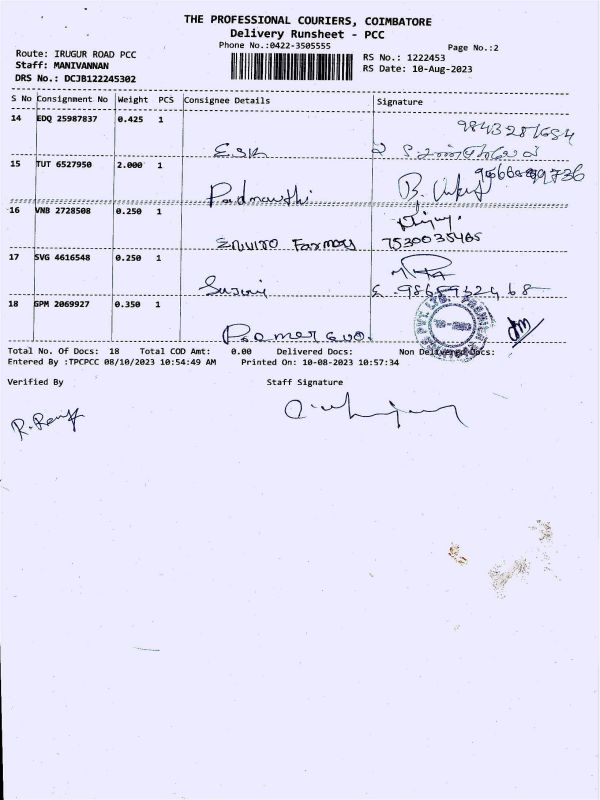 THE PROFESSIONAL COURIERS, COIMBATORE
Delivery Runsheet - PCC
Phone No.:0422-3505555
Page No.:2
Route: IRUGUR ROAD PCC
RS No.: 1222453
Staff: MANIVANNAN
RS Date: 10-Aug-2023
DRS No.: DCJB122245302
S No Consignment No Weight PCS Consignee Details Signature
14 EDQ 25987837 0.425 1
ESK
15 TUT 6527950 2.000 1
16 VNB 2728508 0.250 1
Enviro Farmers 7530035465
17 SVG 4616548 0.250 1
18 GPM 2069927 0.350 1
Total No. Of Docs: 18 Total COD Amt: 0.00 Delivered Docs: Non Delivered Docs:
Entered By :TPCPCC 08/10/2023 10:54:49 AM Printed On: 10-08-2023 10:57:34
Verified By Staff Signature